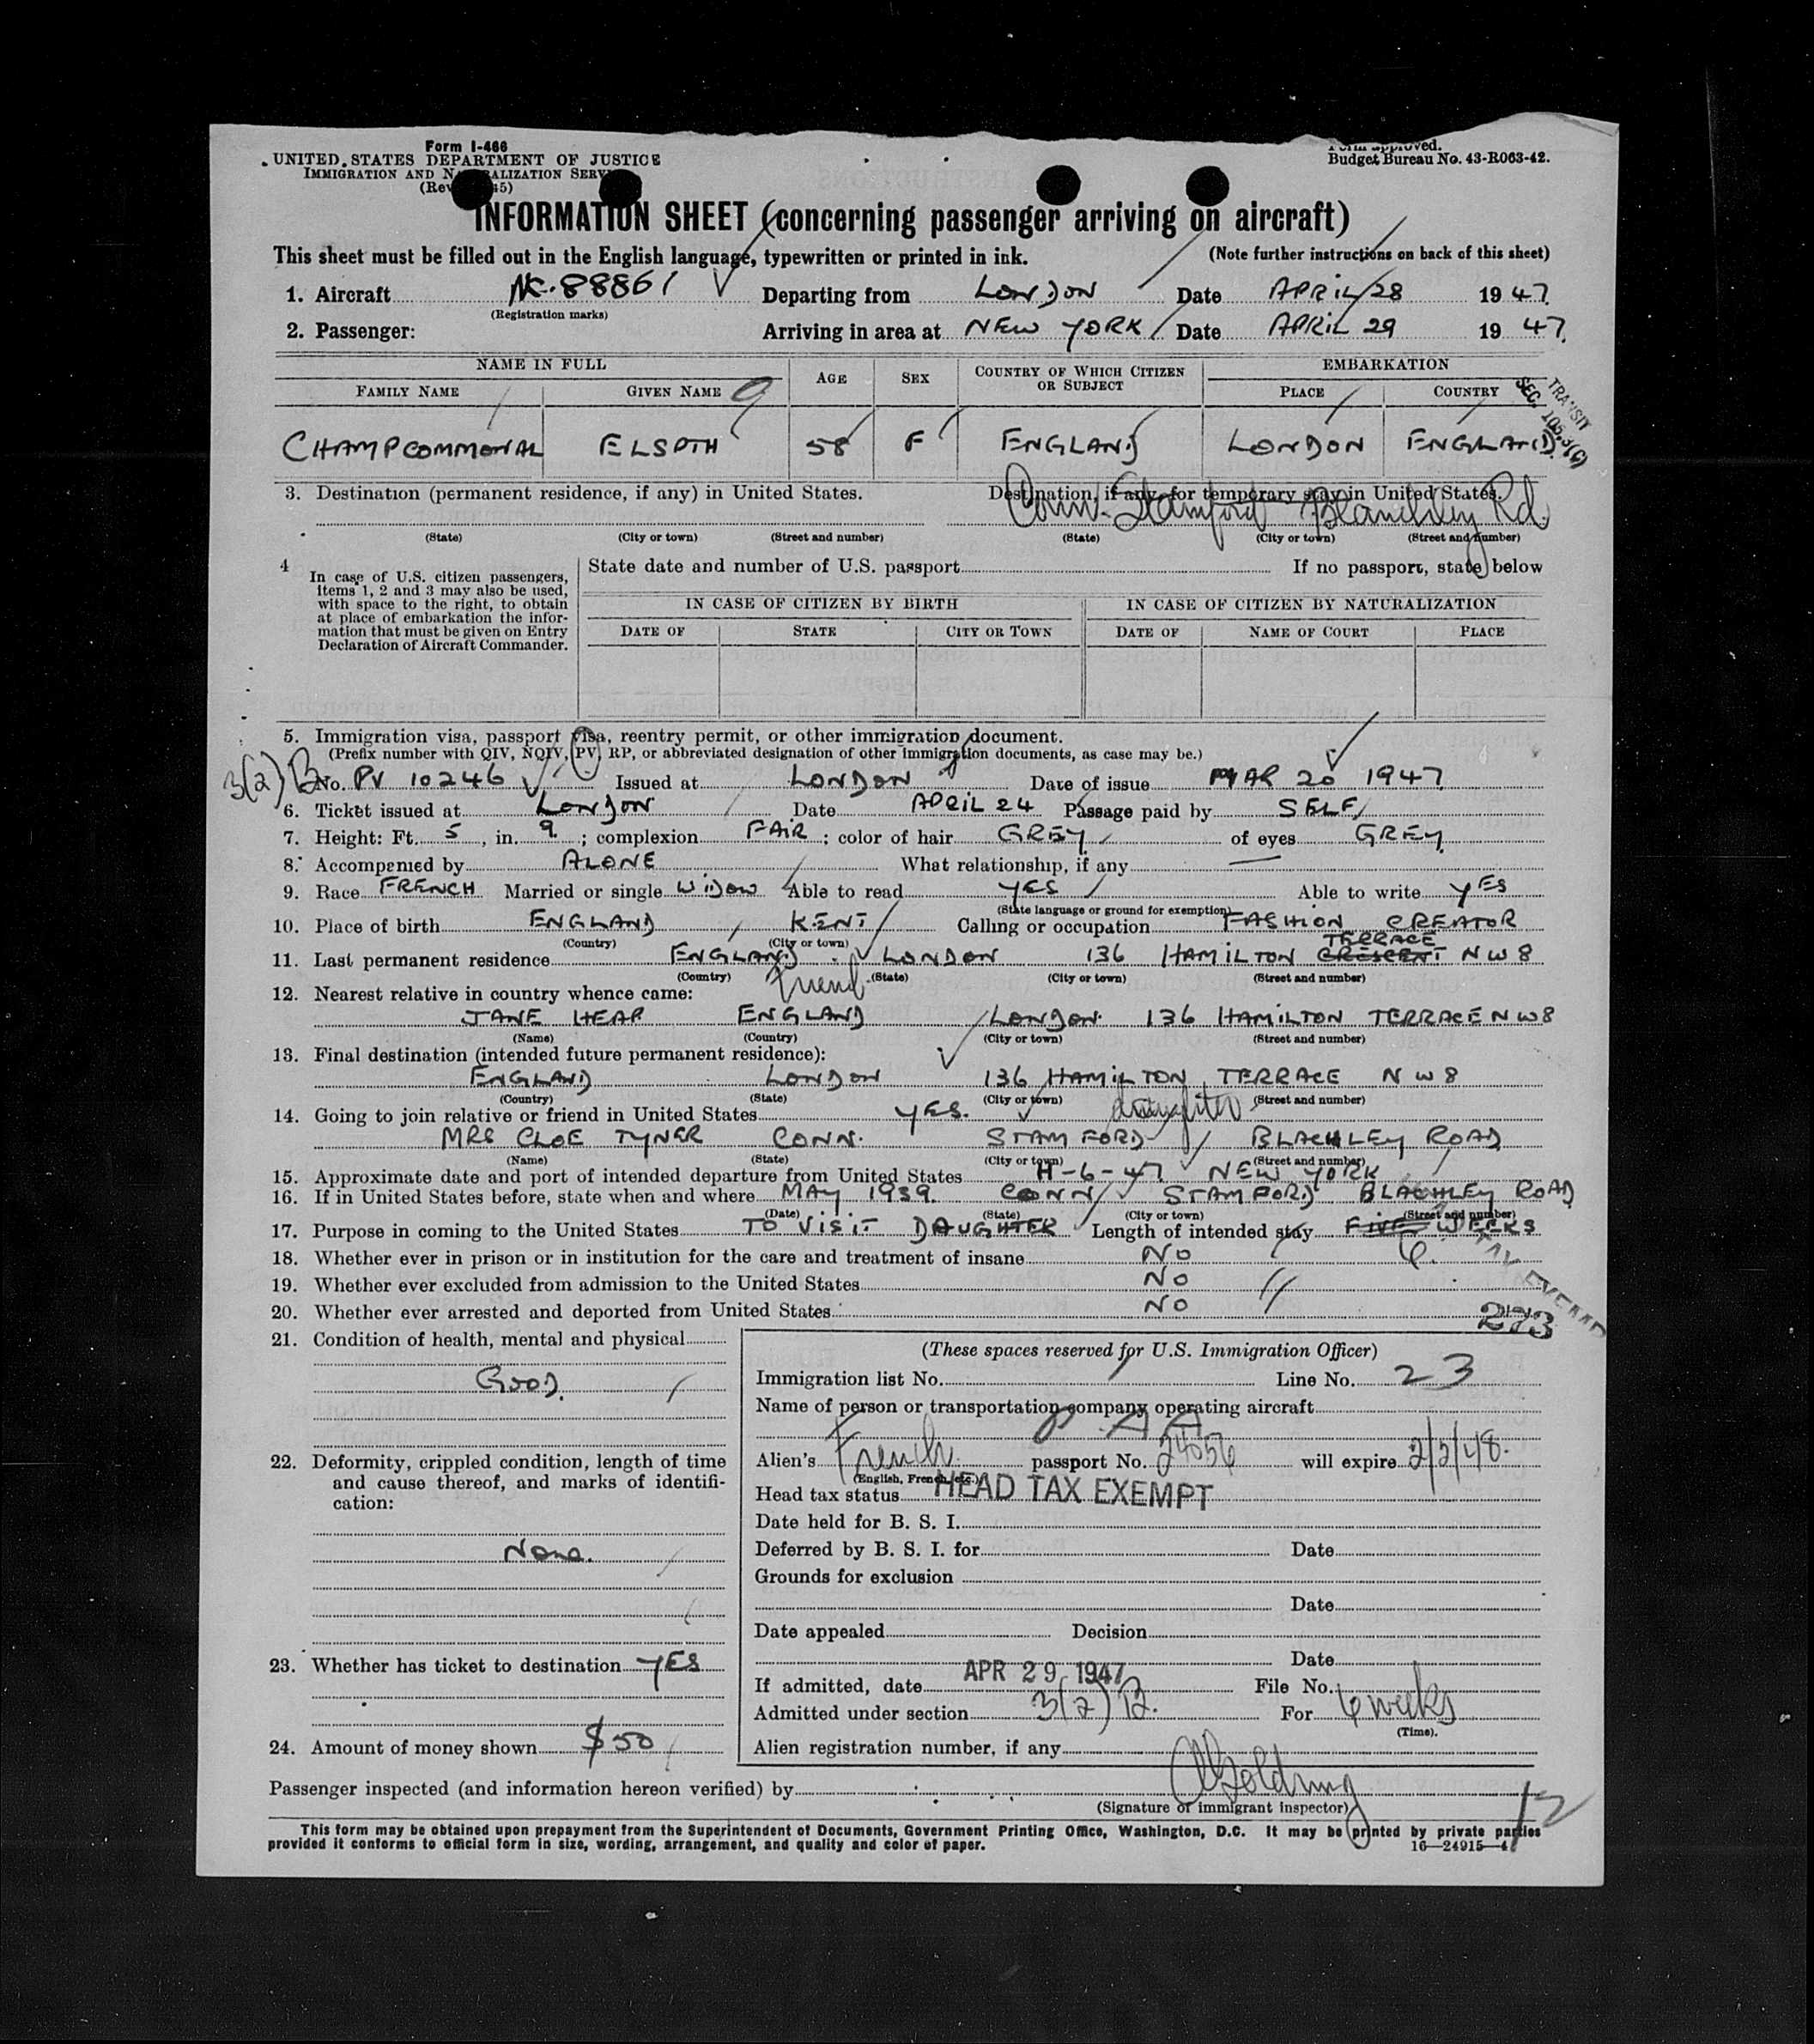 Form I-466
UNITED STATES DEPARTMENT OF JUSTICE
IMMIGRATION AND NATURALIZATION SERVICE
Form approved.
Budget Bureau No. 43-R063-42.
INFORMATION SHEET (concerning passenger arriving on aircraft)
This sheet must be filled out in the English language, typewritten or printed in ink. (Note further instructions on back of this sheet)
1. Aircraft NC.88861 Departing from LONDON Date APRIL 28 1947.
(Registration marks)
2. Passenger: Arriving in area at NEW YORK Date APRIL 29 1947.
NAME IN FULL AGE SEX COUNTRY OF WHICH CITIZEN OR SUBJECT EMBARKATION
FAMILY NAME GIVEN NAME PLACE COUNTRY
TRANSIT
SEC. 105.3(c)
CHAMPCOMMONAL ELSPTH 58 F ENGLAND LONDON ENGLAND.
3. Destination (permanent residence, if any) in United States. Destination, if any, for temporary stay in United States.
Conn. Stamford Blanchley Rd.
(State) (City or town) (Street and number) (State) (City or town) (Street and number)
4 In case of U.S. citizen passengers, items 1, 2 and 3 may also be used, with space to the right, to obtain at place of embarkation the information that must be given on Entry Declaration of Aircraft Commander.
State date and number of U.S. passport If no passport, state below
IN CASE OF CITIZEN BY BIRTH IN CASE OF CITIZEN BY NATURALIZATION
DATE OF STATE CITY OR TOWN DATE OF NAME OF COURT PLACE
5. Immigration visa, passport visa, reentry permit, or other immigration document.
(Prefix number with QIV, NQIV, PV, RP, or abbreviated designation of other immigration documents, as case may be.)
3(2)B No. PV 10246 Issued at LONDON Date of issue MAR 20 1947.
6. Ticket issued at LONDON Date APRIL 24 Passage paid by SELF
7. Height: Ft. 5, in. 9.; complexion FAIR; color of hair GREY of eyes GREY.
8. Accompanied by ALONE What relationship, if any —
9. Race FRENCH Married or single WIDOW Able to read YES Able to write YES
(State language or ground for exemption)
10. Place of birth ENGLAND KENT Calling or occupation FASHION CREATOR
(Country) (City or town)
TERRACE
11. Last permanent residence ENGLAND LONDON 136 HAMILTON CRESCENT NW8
(Country) (State) (City or town) (Street and number)
12. Nearest relative in country whence came: friend
JANE HEAP ENGLAND LONDON 136 HAMILTON TERRACE NW8
(Name) (Country) (City or town) (Street and number)
13. Final destination (intended future permanent residence):
ENGLAND LONDON 136 HAMILTON TERRACE NW8
(Country) (State) (City or town) (Street and number)
14. Going to join relative or friend in United States YES. daughter
MRS CLOE TYNER CONN. STAMFORD BLACHLEY ROAD
(Name) (State) (City or town) (Street and number)
15. Approximate date and port of intended departure from United States H-6-47 NEW YORK
16. If in United States before, state when and where MAY 1939. CONN STAMFORD BLACHLEY ROAD
(Date) (State) (City or town) (Street and number)
17. Purpose in coming to the United States TO VISIT DAUGHTER Length of intended stay FIVE WEEKS
6.
18. Whether ever in prison or in institution for the care and treatment of insane NO
19. Whether ever excluded from admission to the United States NO
20. Whether ever arrested and deported from United States NO
21. Condition of health, mental and physical
GOOD.
22. Deformity, crippled condition, length of time and cause thereof, and marks of identification:
None.
23. Whether has ticket to destination YES
24. Amount of money shown $50
(These spaces reserved for U.S. Immigration Officer)
Immigration list No. Line No. 23
Name of person or transportation company operating aircraft
P A A
Alien's French passport No. 24056 will expire 2/2/48.
(English, French, etc.)
Head tax status HEAD TAX EXEMPT
Date held for B. S. I.
Deferred by B. S. I. for Date
Grounds for exclusion
Date
Date appealed Decision
Date
If admitted, date APR 29 1947 File No.
Admitted under section 3(2)B. For 6 weeks
(Time).
Alien registration number, if any
Passenger inspected (and information hereon verified) by
(Signature of immigrant inspector)
12
This form may be obtained upon prepayment from the Superintendent of Documents, Government Printing Office, Washington, D.C. It may be printed by private parties
provided it conforms to official form in size, wording, arrangement, and quality and color of paper. 16—24915-4